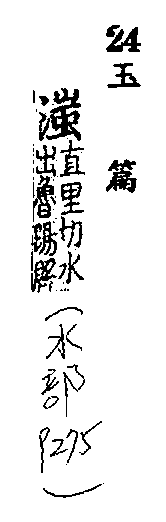 24玉篇
滍直里切水
出魯陽縣
(水部
P275)